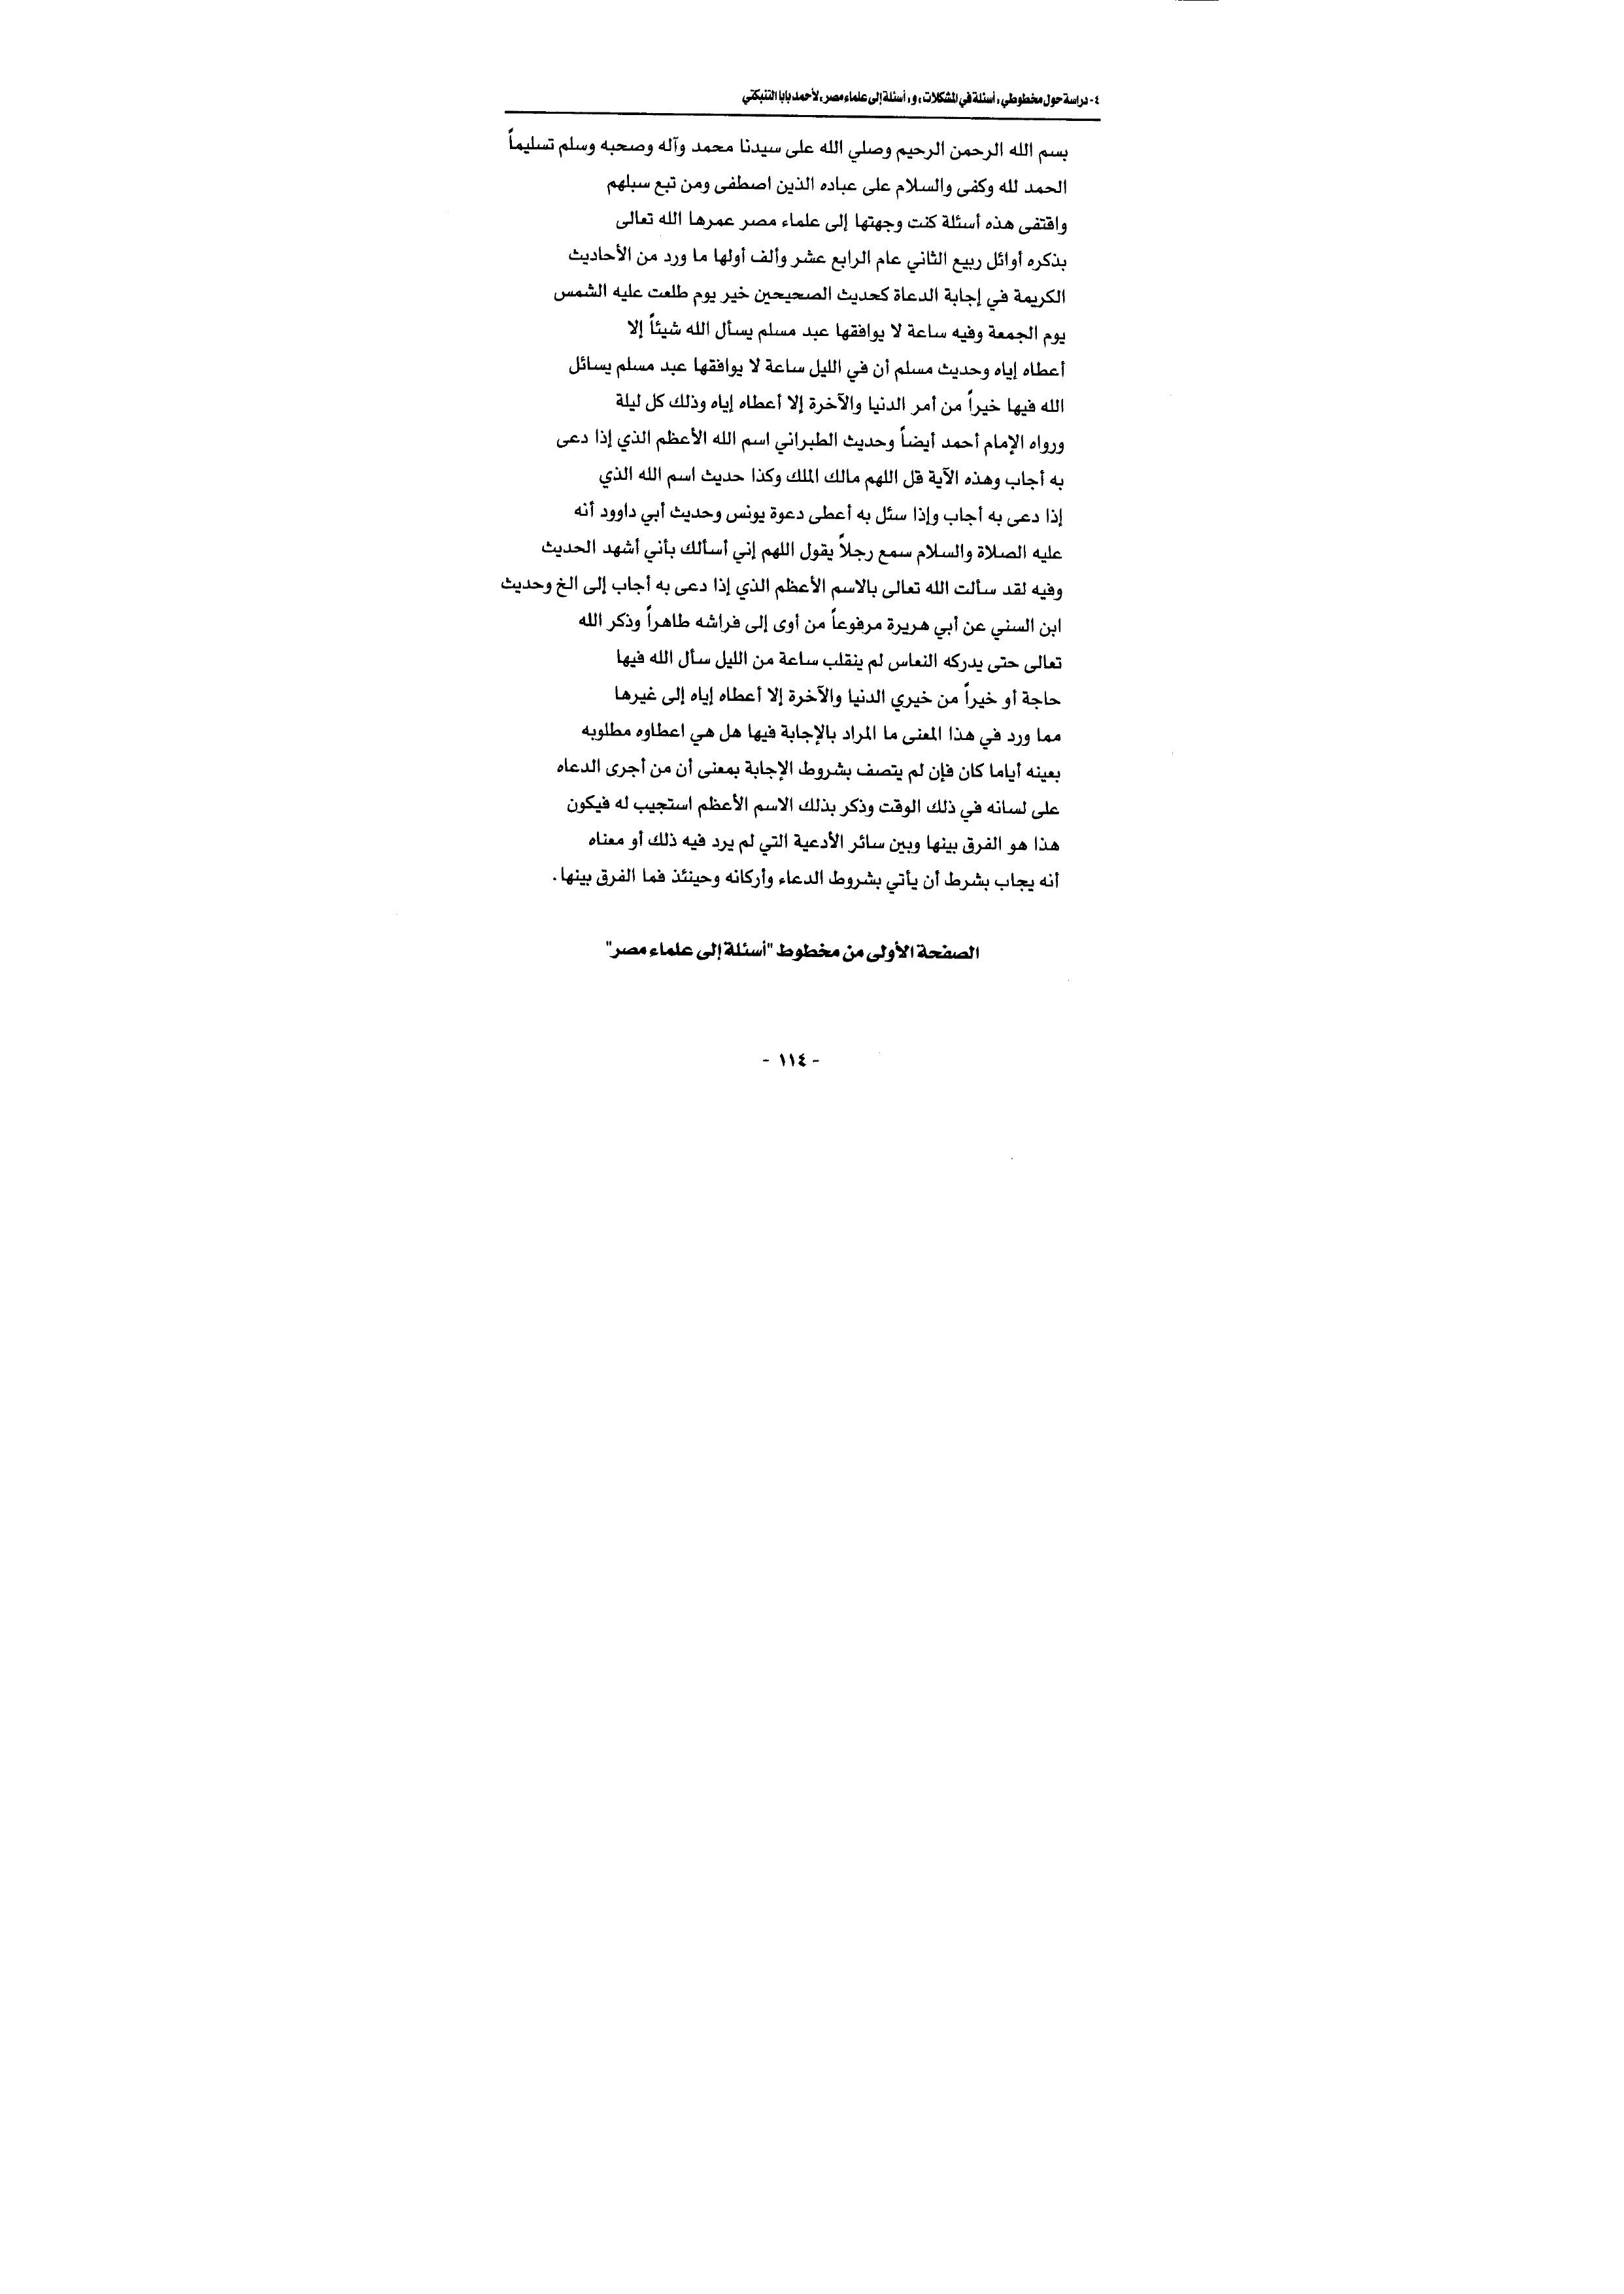 ٤- دراسة حول مخطوطي «أسئلة في المشكلات» و«أسئلة إلى علماء مصر» لأحمد بابا التنبكتي
بسم الله الرحمن الرحيم وصلي الله على سيدنا محمد وآله وصحبه وسلم تسليماً
الحمد لله وكفى والسلام على عباده الذين اصطفى ومن تبع سبلهم
واقتفى هذه أسئلة كنت وجهتها إلى علماء مصر عمرها الله تعالى
بذكره أوائل ربيع الثاني عام الرابع عشر وألف أولها ما ورد من الأحاديث
الكريمة في إجابة الدعاة كحديث الصحيحين خير يوم طلعت عليه الشمس
يوم الجمعة وفيه ساعة لا يوافقها عبد مسلم يسأل الله شيئاً إلا
أعطاه إياه وحديث مسلم أن في الليل ساعة لا يوافقها عبد مسلم يسائل
الله فيها خيراً من أمر الدنيا والآخرة إلا أعطاه إياه وذلك كل ليلة
ورواه الإمام أحمد أيضاً وحديث الطبراني اسم الله الأعظم الذي إذا دعى
به أجاب وهذه الآية قل اللهم مالك الملك وكذا حديث اسم الله الذي
إذا دعى به أجاب وإذا سئل به أعطى دعوة يونس وحديث أبي داوود أنه
عليه الصلاة والسلام سمع رجلاً يقول اللهم إني أسألك بأني أشهد الحديث
وفيه لقد سألت الله تعالى بالاسم الأعظم الذي إذا دعى به أجاب إلى الخ وحديث
ابن السني عن أبي هريرة مرفوعاً من أوى إلى فراشه طاهراً وذكر الله
تعالى حتى يدركه النعاس لم ينقلب ساعة من الليل سأل الله فيها
حاجة أو خيراً من خيري الدنيا والآخرة إلا أعطاه إياه إلى غيرها
مما ورد في هذا المعنى ما المراد بالإجابة فيها هل هي اعطاوه مطلوبه
بعينه أياما كان فإن لم يتصف بشروط الإجابة بمعنى أن من أجرى الدعاه
على لسانه في ذلك الوقت وذكر بذلك الاسم الأعظم استجيب له فيكون
هذا هو الفرق بينها وبين سائر الأدعية التي لم يرد فيه ذلك أو معناه
أنه يجاب بشرط أن يأتي بشروط الدعاء وأركانه وحينئذ فما الفرق بينها.
الصفحة الأولى من مخطوط "أسئلة إلى علماء مصر"
- ١١٤ -